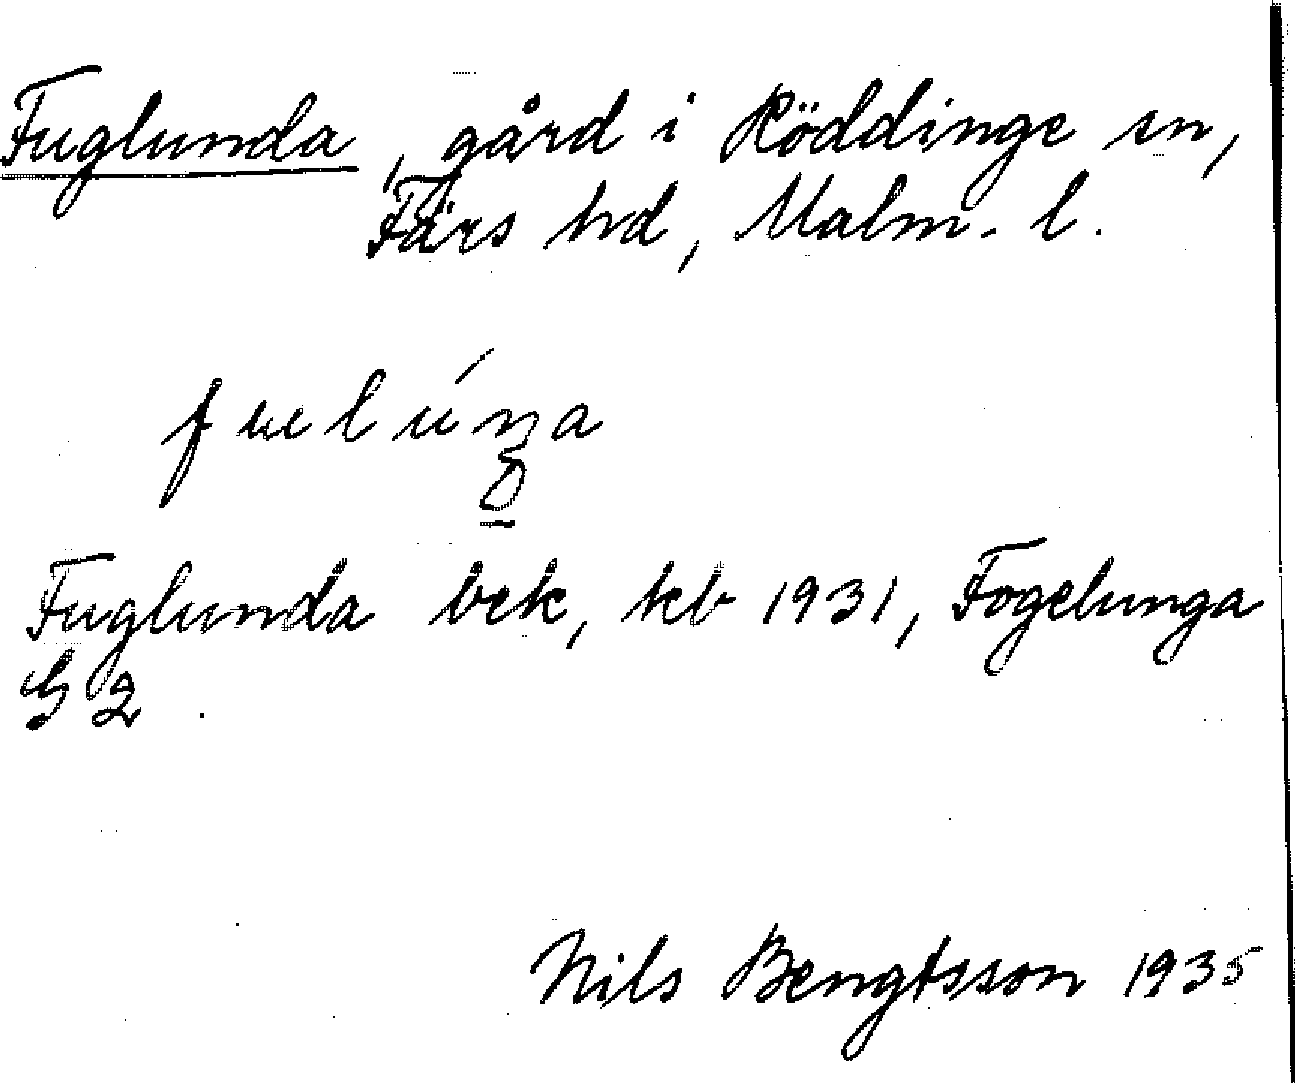 Fuglunda, gård i Röddinge sn,
Färs hd, Malm. l.
Fuglunda bek, kb 1931, Fogelunga
G 2.
Nils Bengtsson 1935